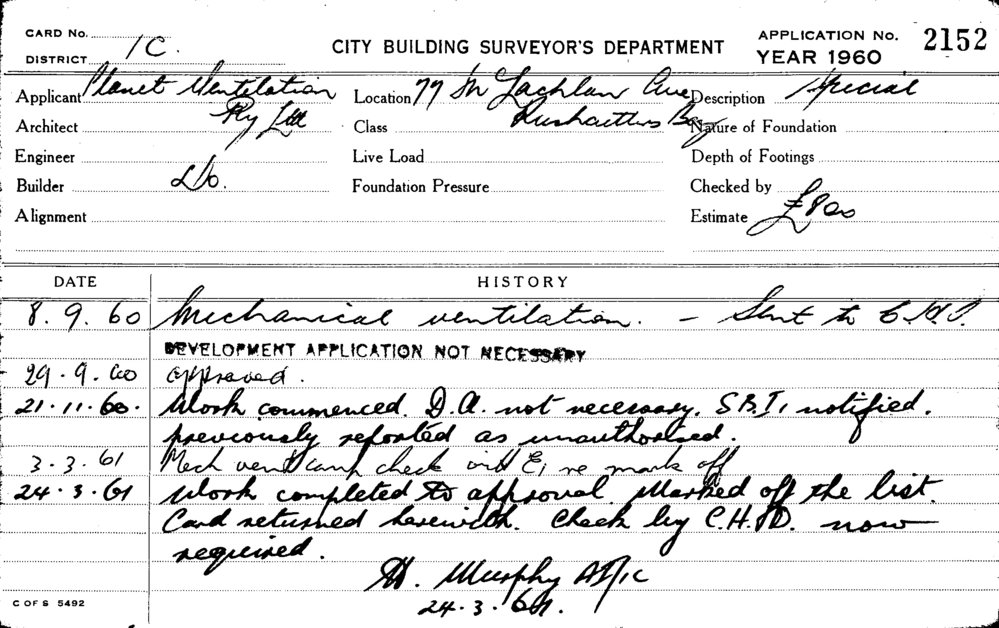 CARD No. 1C. CITY BUILDING SURVEYOR'S DEPARTMENT APPLICATION No. 2152
DISTRICT YEAR 1960
Applicant Planet Ventilation Location 77 Mc Lachlan Ave Description Special
Architect Pty Ltd Class Rushcutters Bay Nature of Foundation
Engineer Live Load Depth of Footings
Builder Do. Foundation Pressure Checked by
Alignment Estimate £800
DATE HISTORY
8.9.60 Mechanical ventilation. – Sent to C.H.D.
DEVELOPMENT APPLICATION NOT NECESSARY
29.9.60 approved.
21.11.60. Work commenced. D.A. not necessary. S.B.I. notified.
previously reported as unauthorised.
3.3.61 Mech vent check with E, re mark off
24.3.61 Work completed to approval. Marked off the list.
Card returned herewith. Check by C.H.D. now
required.
H. Murphy
24.3.61.
C OF S 5492